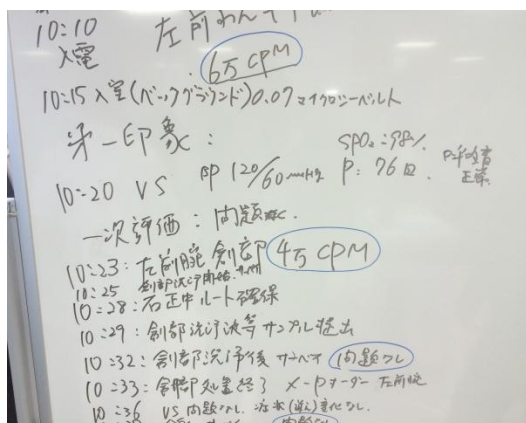 10:10 左前わん
入電
6万CPM
10:15 入室(バックグラウンド)0.07マイクロシーベルト
第一印象:
SPO₂:98%
10:20 VS BP 120/60mmHg P:76回. 呼吸音正常
一次評価:問題なく.
10:23:左前腕創部 4万CPM
10:25 創部洗浄開始
10:28:右正中ルート確保
10:29:創部洗浄液等サンプル提出
10:32:創部洗浄後サーベイ 問題なし
10:33:創部処置終了 X-Pオーダー 左前腕
10:36 VS問題なし. 変化なし.
問題なし